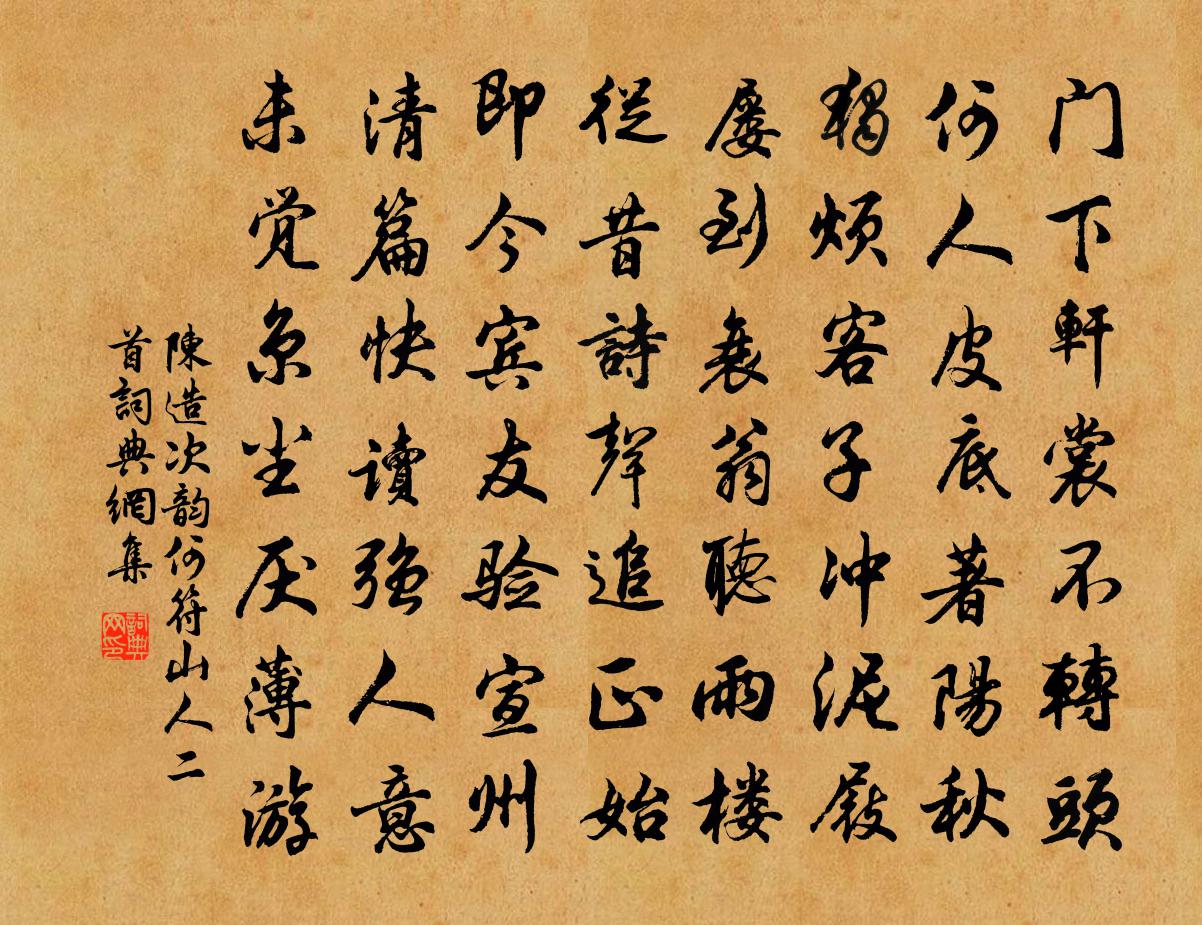 门下軒裳不轉頭
何人皮底著陽秋
獨煩客子沖泥屐
屡到衰翁聽雨楼
從昔詩聲追正始
即今宾友验宣州
清篇快讀强人意
未觉京尘厌薄游
陳造次韵何符山人二
首詞典網集
詞典网印